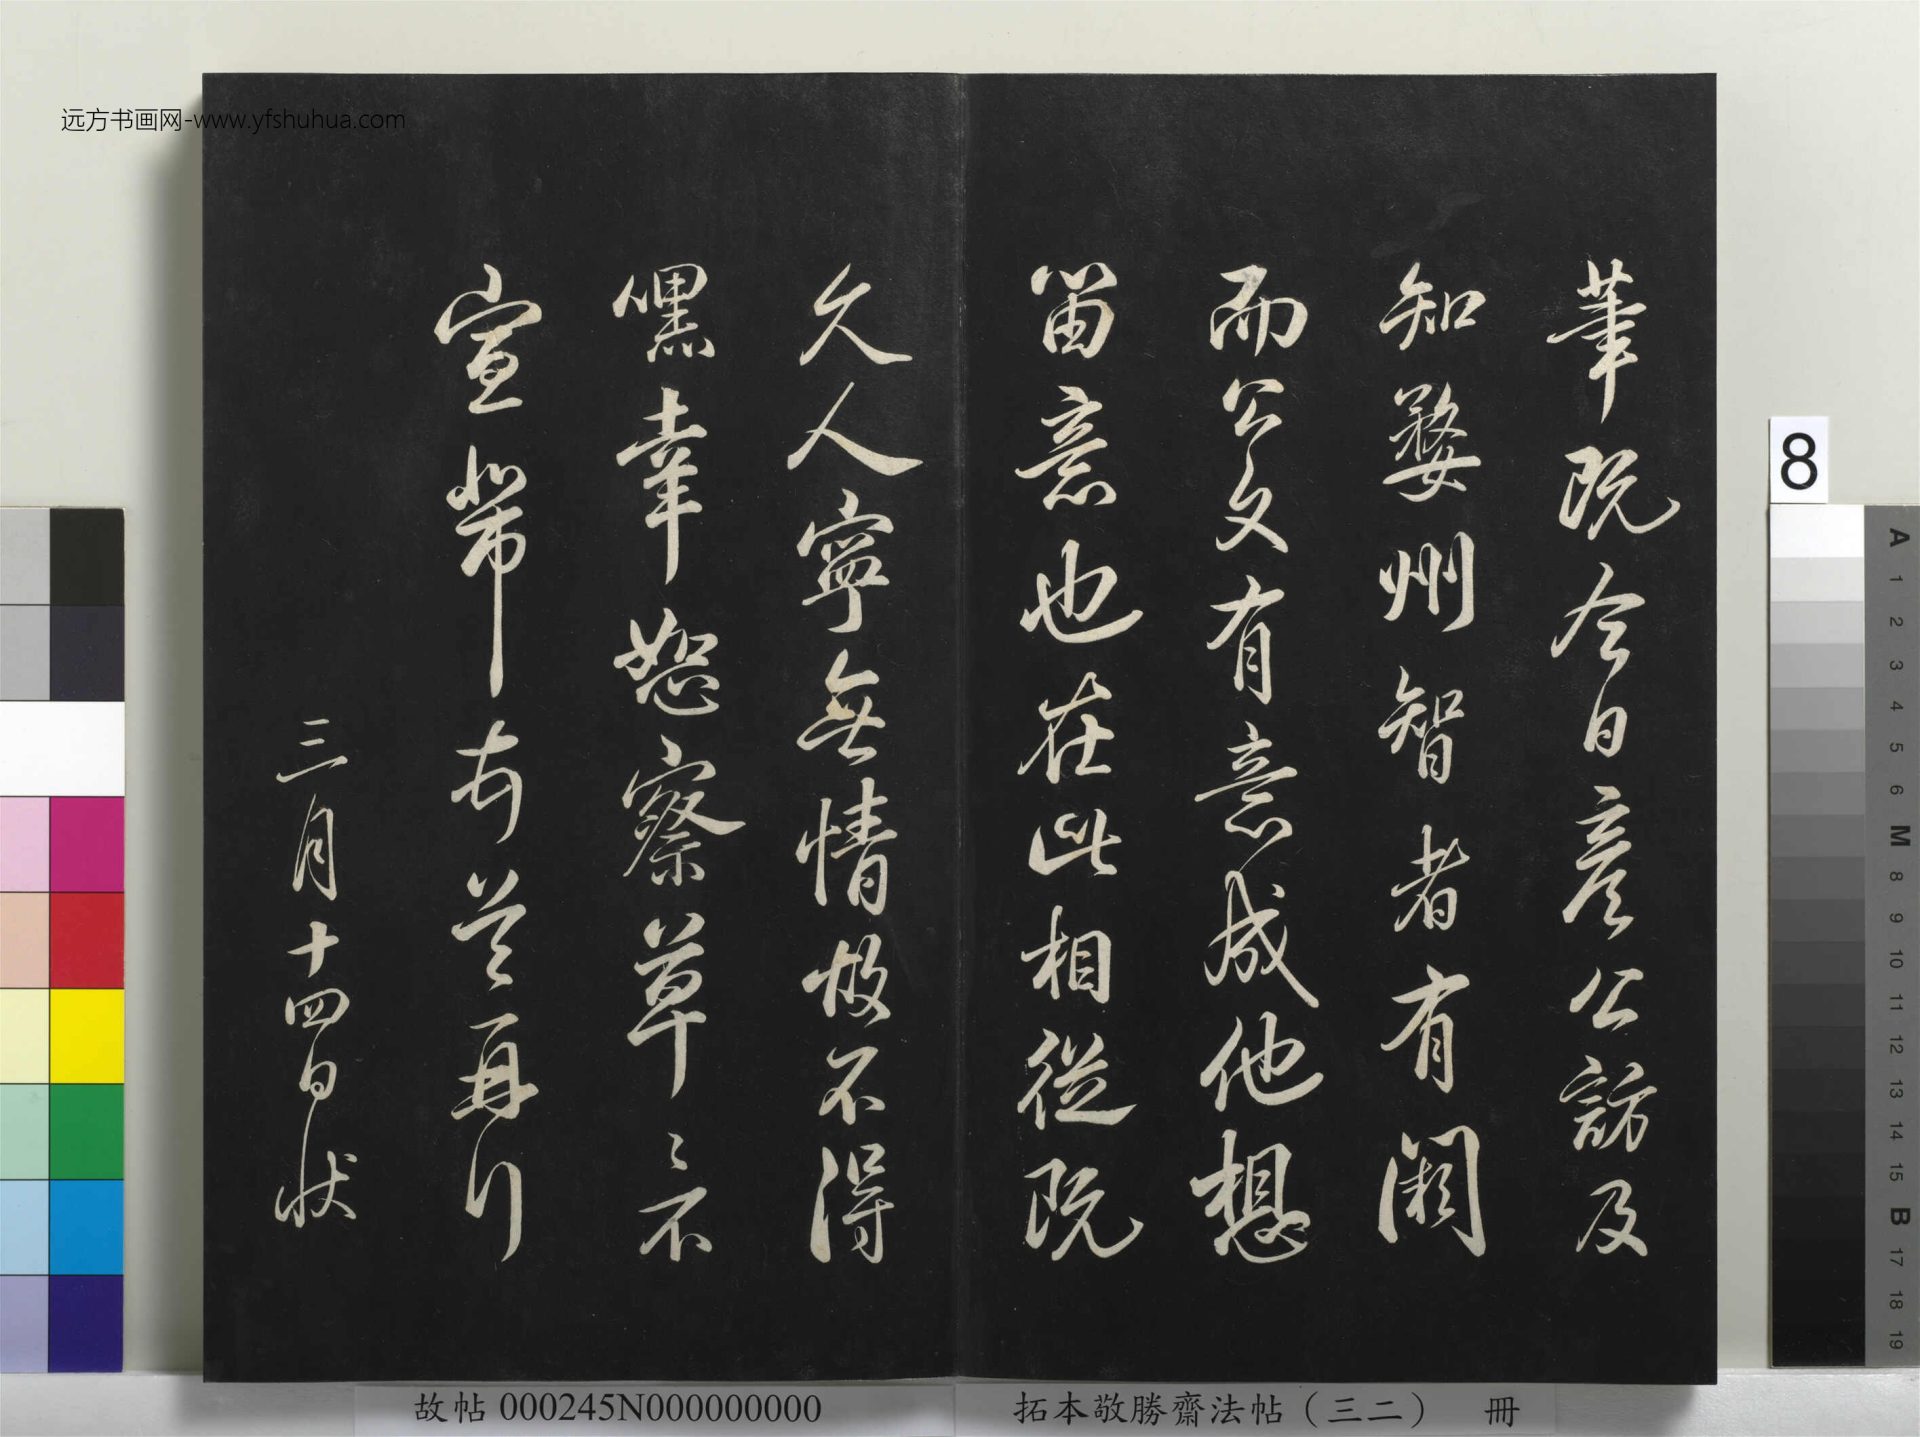 远方书画网-www.yfshuhua.com
筆既今日彦公訪及
知婺州智者有闕
而公文有意成他想
留意也在此相從既
久人寧無情故不得
嘿幸恕察草〻不
宣芾頓首再行
三月十四日狀
8
A 1 2 3 4 5 6 M 8 9 10 11 12 13 14 15 B 17 18 19
故帖 000245N000000000
拓本敬勝齋法帖（三二） 冊